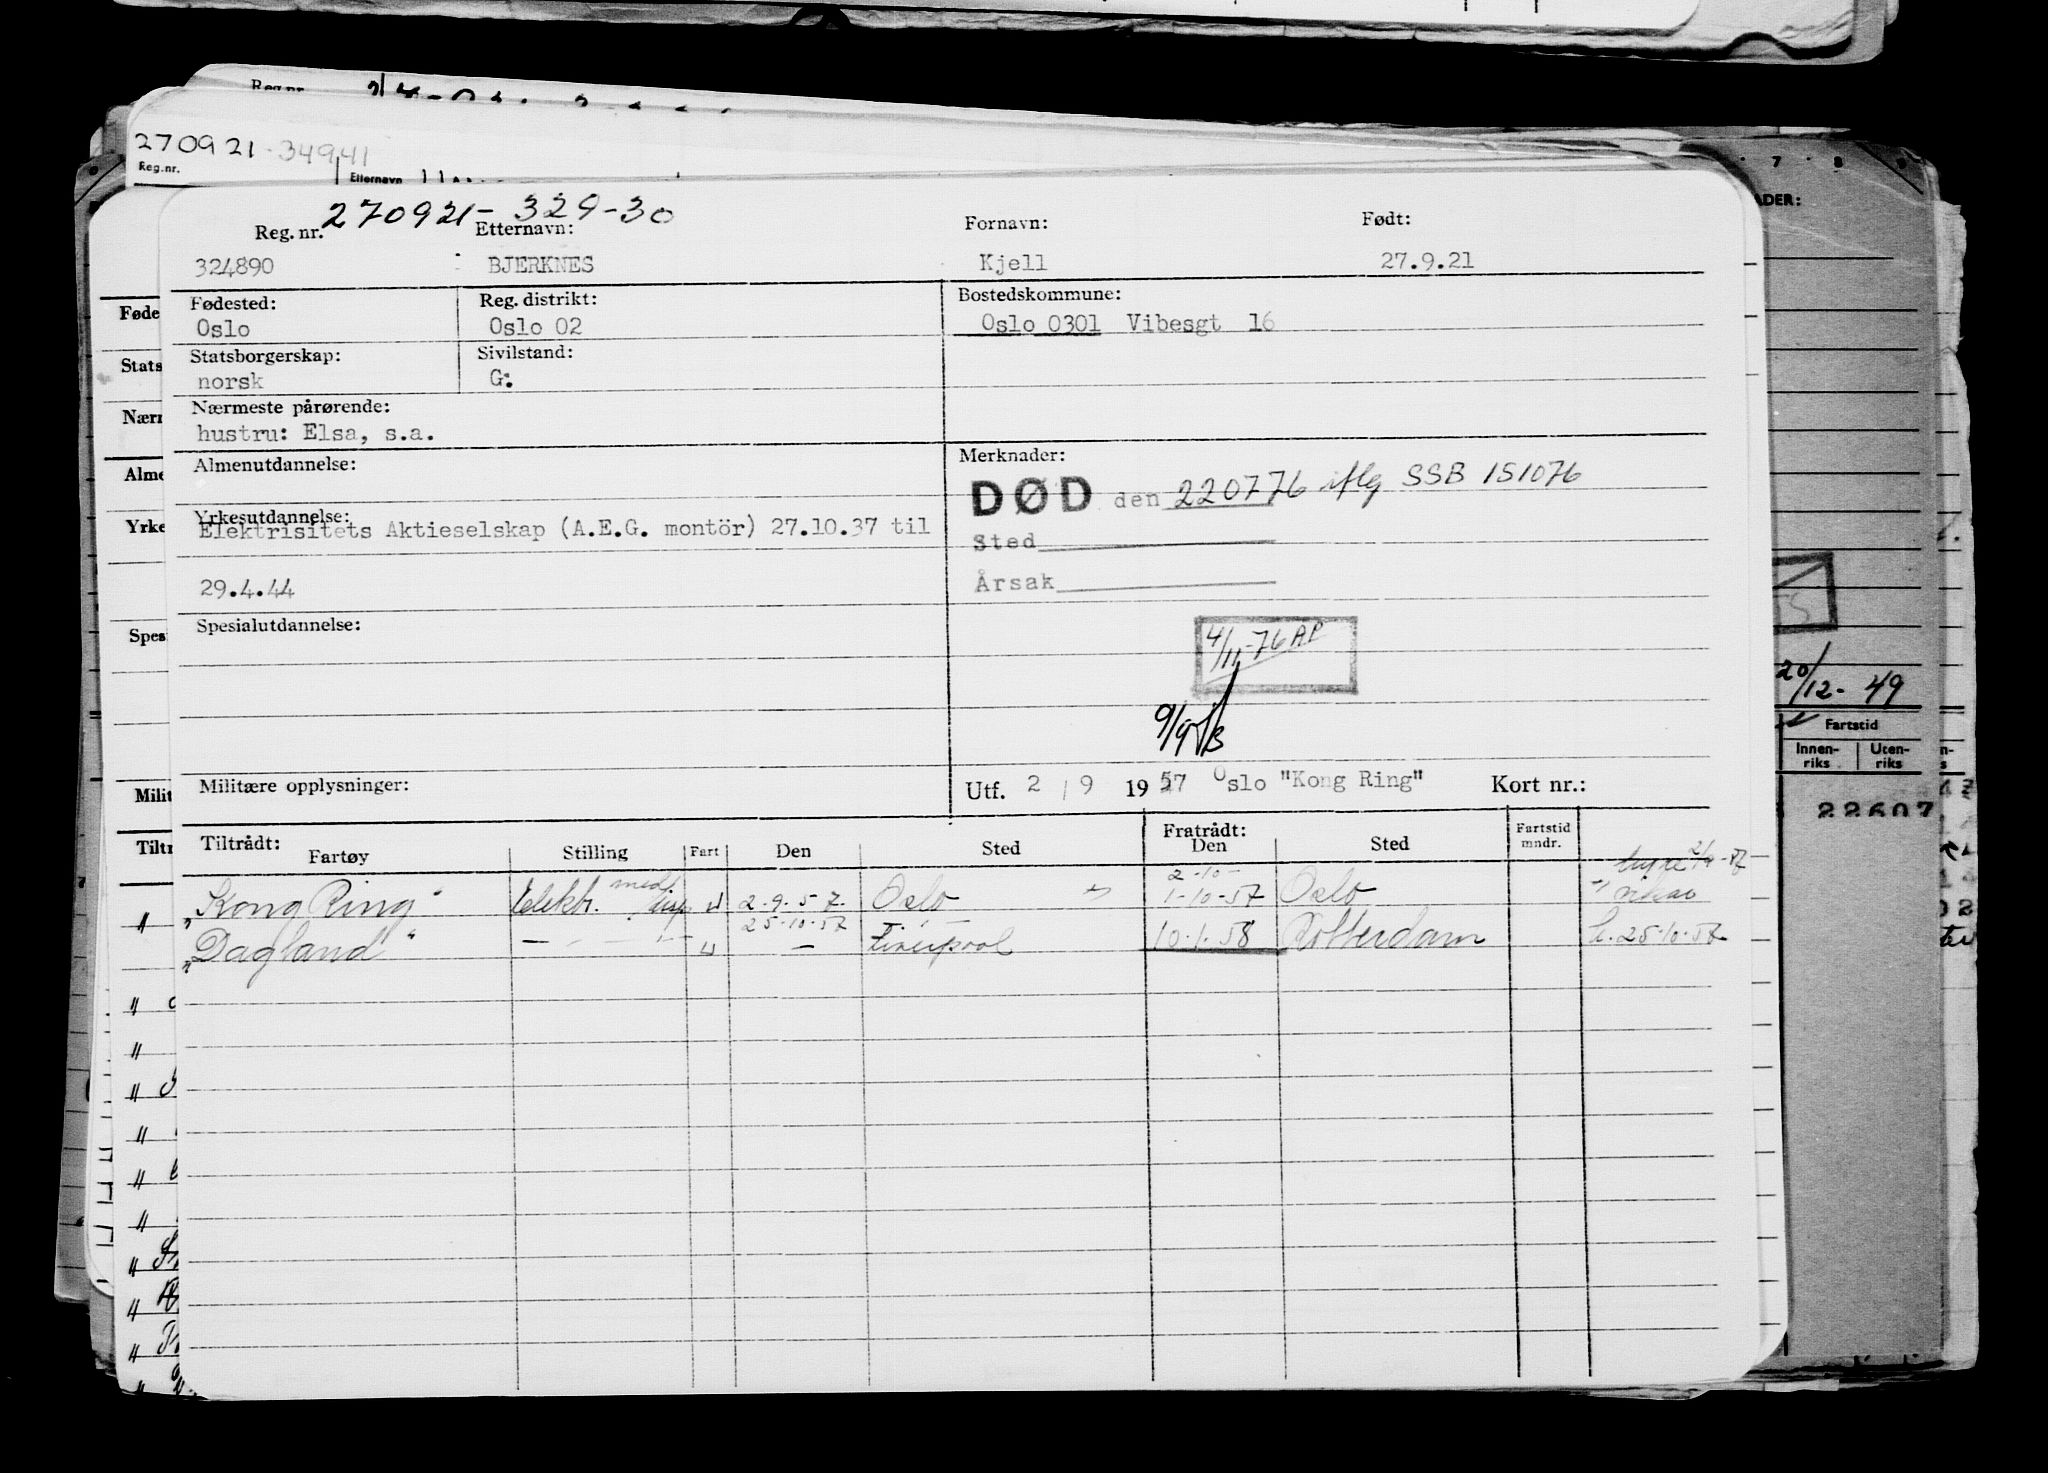 Reg.nr.
270921-34941
Reg.nr.
Etternavn
270921-329-30
Reg. nr. Etternavn: Fornavn: Født:
324890 BJERKNES Kjell 27.9.21
Fødested: Reg. distrikt: Bostedskommune:
Oslo Oslo 02 Oslo 0301 Vibesgt 16
Statsborgerskap: Sivilstand:
norsk G:
Nærmeste pårørende:
hustru: Elsa, s.a.
Almenutdannelse: Merknader:
DØD den 220776 iflg SSB 151076
Yrkesutdannelse:
Elektrisitets Aktieselskap (A.E.G. montör) 27.10.37 til
Sted
29.4.44 Årsak
Spesialutdannelse:
4/11-76 AP
Militære opplysninger: Utf. 2 / 9 1957 Oslo "Kong Ring" Kort nr.:
Tiltrådt: Fratrådt: Fartstid mndr.
Fartøy Stilling Fart Den Sted Den Sted
2-10-
"Kong Ring" Elektr. med disp u 2.9.57. Oslo 1-10-57 Oslo
25.10.57
"Dagland" — — u — Liverpool 10.1.58 Rotterdam h. 25.10.57
ADER:
20/12-49
Fartstid
Innen-riks Uten-riks
22607
Føde
Stats
Nærr
Alme
Yrke
Spes
Milit
Tiltr